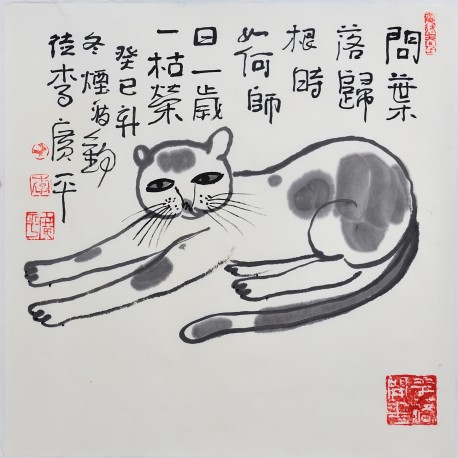 問葉
落歸
根時
如何師
曰一歲
一枯榮
癸巳年
冬煙波釣
徒李廣平